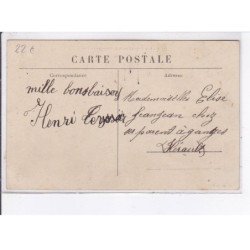 22 e
CARTE POSTALE
Correspondance
Adresse
mille bons baisers
Henri
Mademoiselle Elise
chez
ses parent à ganges
Hérault